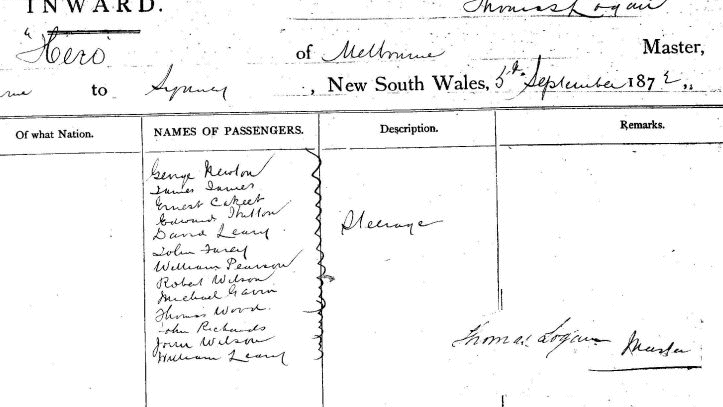 INWARD.
Thomas Logan
"Hero of Melbourne Master,
to Sydney, New South Wales, 5th September 1872
Of what Nation. NAMES OF PASSENGERS. Description. Remarks.
George Newton
James James
Ernest
Edward Hutton
David Leary
Steerage
John Furey
William Pearson
Robert Wilson
Michael Gavin
Thomas Wood
John Richards
Thomas Logan Master
John Wilson
William Leary